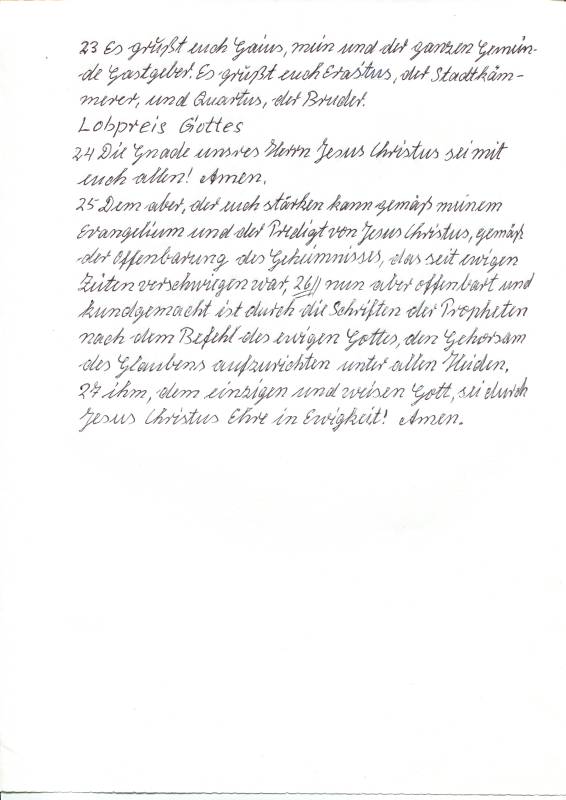 23 Es grüßt euch Gaius, mein und der ganzen Gemein-
de Gastgeber. Es grüßt euch Erastus, der Stadtkäm-
merer, und Quartus, der Bruder.
Lobpreis Gottes
24 Die Gnade unsres Herrn Jesus Christus sei mit
euch allen! Amen.
25 Dem aber, der euch stärken kann gemäß meinem
Evangelium und der Predigt von Jesus Christus, gemäß
der Offenbarung des Geheimnisses, das seit ewigen
Zeiten verschwiegen war, 26 nun aber offenbart und
kundgemacht ist durch die Schriften der Propheten
nach dem Befehl des ewigen Gottes, den Gehorsam
des Glaubens aufzurichten unter allen Heiden,
27 ihm, dem einzigen und weisen Gott, sei durch
Jesus Christus Ehre in Ewigkeit! Amen.